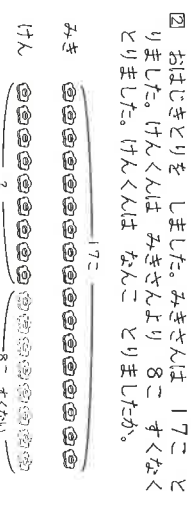 ② おはじきとりを しました。みきさんは 17こ と
りました。けんくんは みきさんより 8こ すくなく
とりました。けんくんは なんこ とりましたか。
17こ
みき
けん
?
8こ すくない